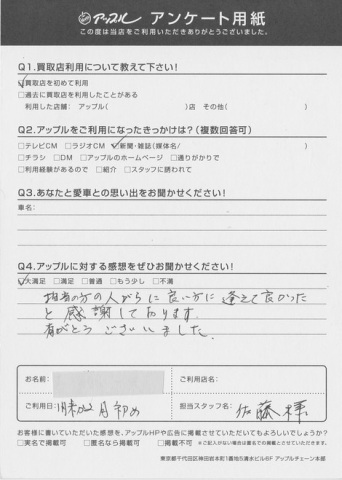 アップル アンケート用紙
この度は当店をご利用いただきありがとうございました。
Q1.買取店利用について教えて下さい!
☑買取店を初めて利用
□過去に買取店を利用したことがある
利用した店舗: アップル( )店 その他( )
Q2.アップルをご利用になったきっかけは?(複数回答可)
□テレビCM □ラジオCM ☑新聞・雑誌(媒体名/ )
□チラシ □DM □アップルのホームページ □通りがかりで
□利用経験があるので □紹介 □スタッフに誘われて
Q3.あなたと愛車との思い出をお聞かせください!
車名:
Q4.アップルに対する感想をぜひお聞かせください!
☑大満足 □満足 □普通 □もう少し □不満
担当の方の人がらに良い方に逢えて良かった
と感謝して おります
有がとうございました。
お名前:
ご利用店名:
ご利用日: 月初め
担当スタッフ名: 佐藤
お客様に書いていただいた感想を、アップルHPや広告に掲載させていただいてもよろしいでしょうか?
□実名で掲載可 □匿名なら掲載可 □掲載不可 ※ご記入がない場合は匿名での掲載とさせていただきます。
東京都千代田区神田岩本町1番地5清水ビル6F アップルチェーン本部